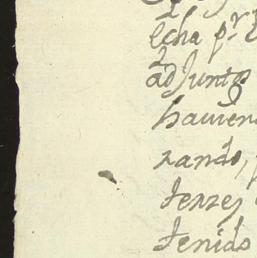 echa p.r
adJuntos
haviend
zando,
terzej
tenido